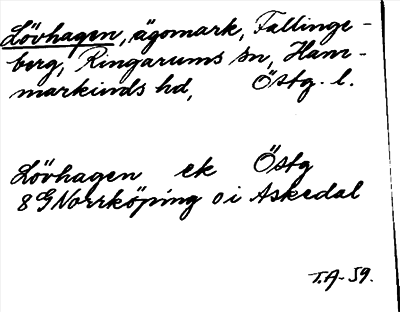 Lövhagen, ägomark, Fallinge-
berg, Ringarums sn, Ham-
markinds hd, Östg. l.
Lövhagen ek Östg
8G Norrköping oi Askedal
T.A-59.